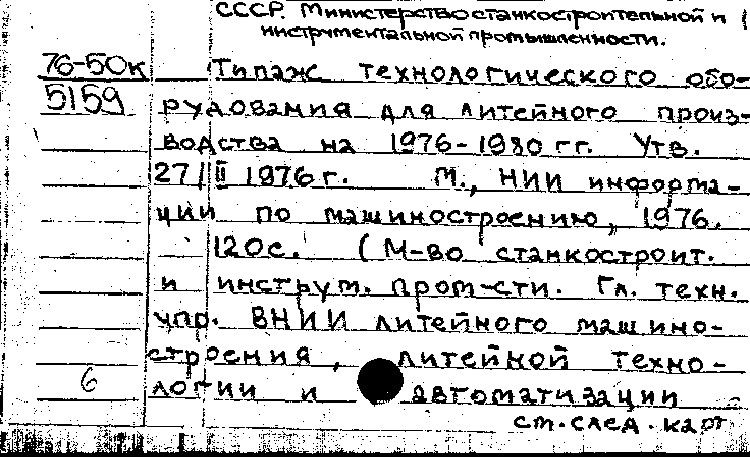 СССР. Министерство станкостроительной и
инструментальной промышленности.
76-50к Типаж технологического обо-
5159 рудования для литейного произ-
водства на 1976-1980 гг. Утв.
27/II 1976г. М., НИИ информа-
ции по машиностроению, 1976.
120с. (М-во станкостроит.
и инструм. пром-сти. Гл. техн.
упр. ВНИИ литейного машино-
строения, литейной техно-
6 логии и автоматизации
см. след. карт